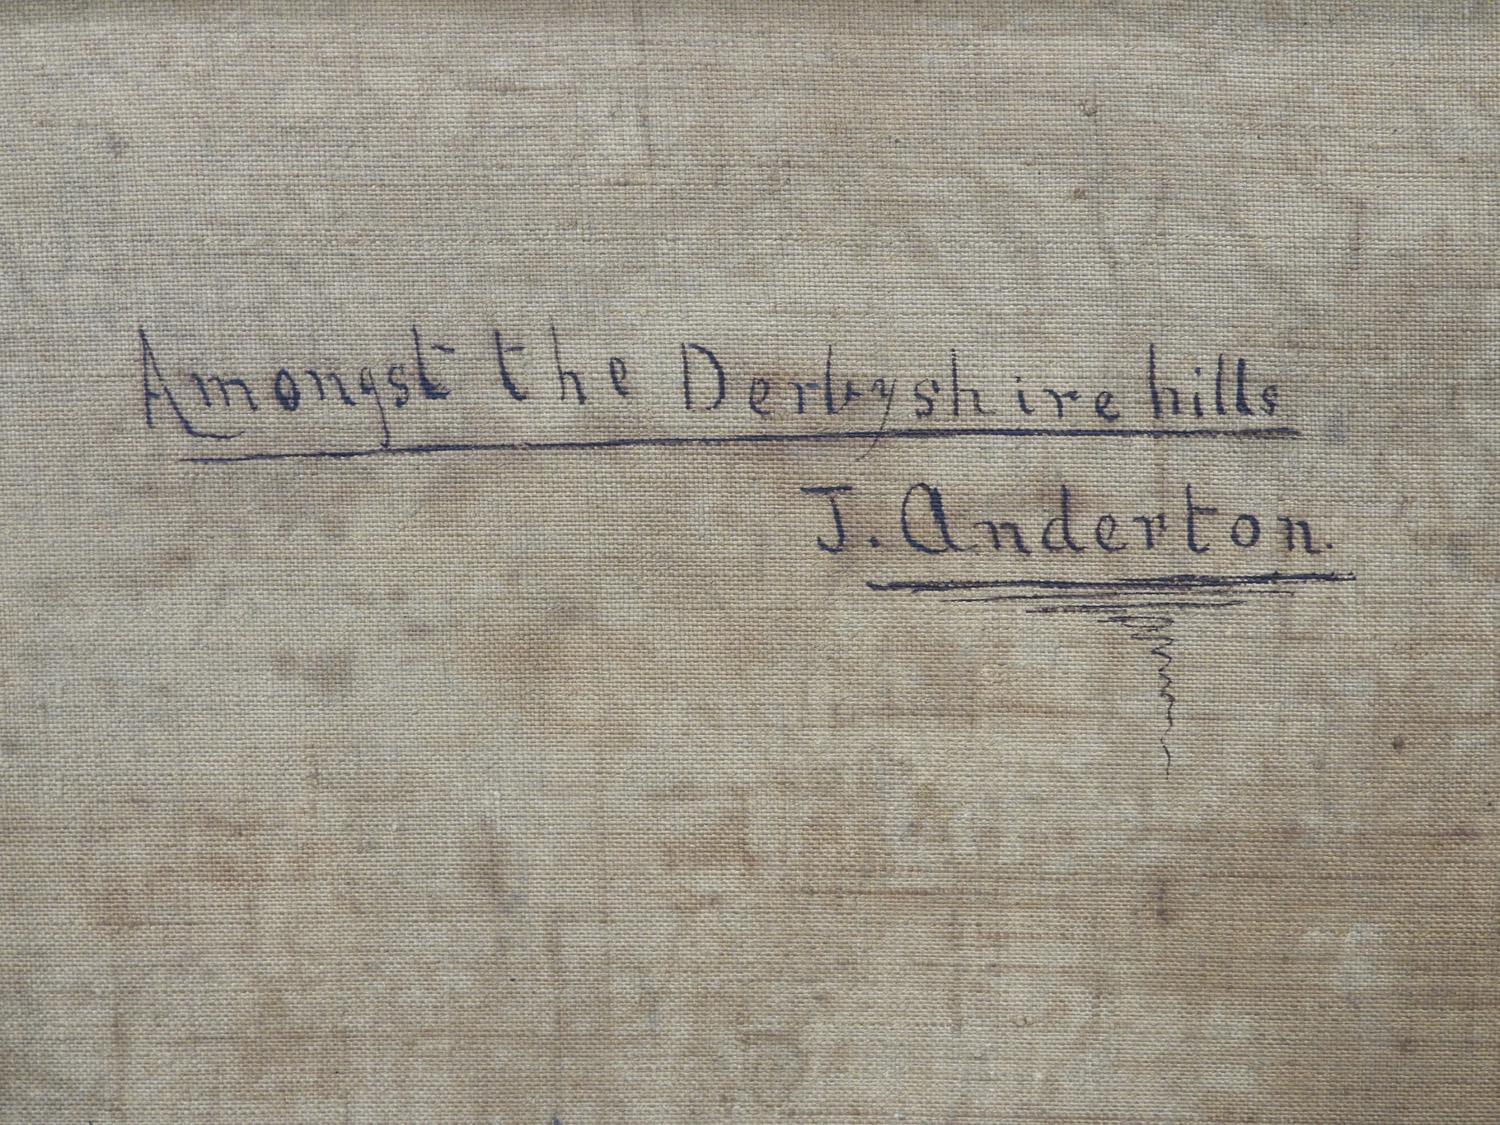 Amongst the Derbyshire hills
J. Anderton.